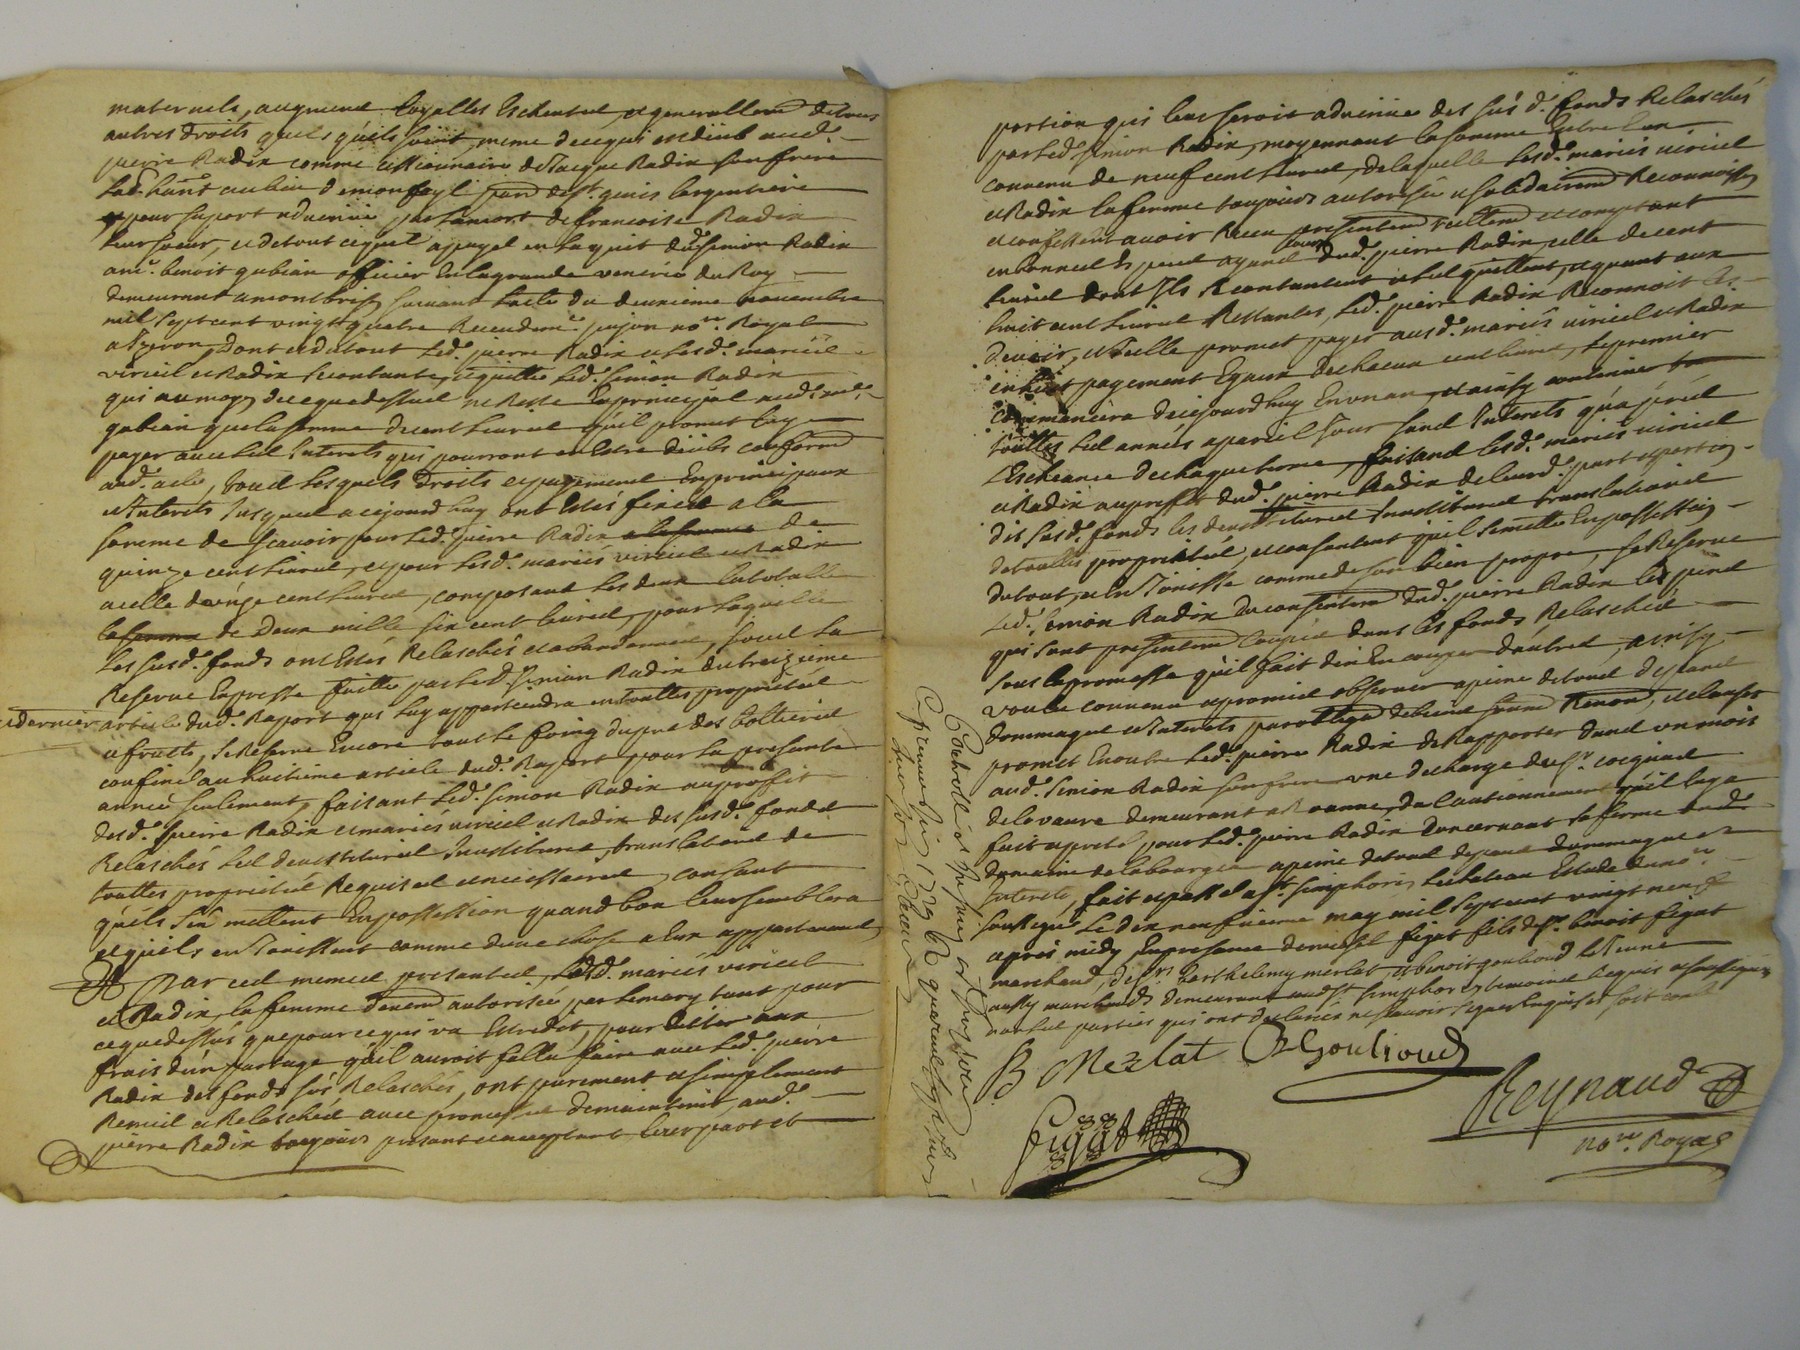 maternels, augment loyalles Eschentes et generallemt detous
autres droits quels quils soient, meme de ce qui est dieub aud.
pierre Radix comme cessionnaire de Jacque Radix son frere
par st. genis largentiere
pour suport advenüe par la mort de francoise Radix
leur soeur, et de tout ce quil a payé en laquit dud. Simon Radix
au sr. benoit gubian officier En la grande venerie du Roy
demeurant a montbrison suivant l'acte du deuxieme novembre
mil sept cent vingt quatre Receu dud. pujon nore. Royal
a yzeron, dont et de tout led. pierre Radix et lesd. mariés
viricel et Radix se contente, et quitte led. Simon Radix
qui au moyen de ce que dessus ne Reste En principal aud. sieur
gubian que la somme de cent livres qu'il promet luy
payer avec les Interets qui pourront en Estre dëubs conformt
aud. acte, tous lesquels droits et payement En principaux
et Interets Jusques a cejourd'huy ont Estés fixés a la
somme de scavoir pour led. pierre Radix a la somme de
quinze cent livres, et pour lesd. mariés viricel et Radix
a celle d'onze cent livres, composant les deux la totalle
la somme de Deux mille six cent livres, pour laquelle
les susd. fonds ont Estés Relaschés et abandonnés, sous la
Reserve Expresse faitte par led. Simon Radix du treizieme
et dernier article dud. Raport qui luy appartiendra en touttes proprietés
et fruits, se Reserve Encore tout le foing du pré des
confiné au huitieme article dud. Raport pour la presente
année seulement, faisant led. Simon Radix au proffit
desd. pierre Radix et mariés viricel et Radix des susd. fonds
Relaschés les devestitures Investitures translations de
touttes proprietés Requises et necessaires, consant
qu'ils s'en mettent En possession quand bon leur semblera
et qu'ils en Jouissent comme d'une chose a Eux appartenant
Et par ces memes presentes, lesd. mariés viricel
et Radix, la femme duemt autorisée par le mary tant pour
ce que dessus que pour ce qui va Estre dit, pour Eviter aux
frais d'un partage qu'il auroit fallu faire avec led. pierre
Radix des fonds sus Relaschés, ont purement et simplement
Remis et Relasché avec promesse de maintenir, aud.
pierre Radix toujours presant et acceptant leur part et
portion qui leur seroit advenüe des susd. fonds Relaschés
par led. Simon Radix, moyennant la somme Entre Eux
convenu de neuf cent livres, de laquelle lesd. mariés viricel
et Radix la femme toujours autorisée et solidairemt Reconnoissent
et confessent avoir Receu presentemt reellemt et comptant
en bonnes Especes ayant cours dud. pierre Radix, celle de cent
livres dont Ils se contentent et l'en quittent, et quant aux
huit cent livres Restantes, led. pierre Radix Reconnoit les
devoir, et Icelle promet payer ausd. mariés viricel et Radix
en huit payement Egaux de chacun cent livres, le premier
commancera de cejourd'huy En un an, et ainsy continuer
touttes les années a pareil Jour sans Interets qu'apres
l'Escheance de chaque terme, faisand lesd. mariés viricel
et Radix au proffit dud. pierre Radix de leurd. part et portion
des susd. fonds les devestitures Investitures translations
de touttes proprietés, et consentent qu'il s'en mette En possession
du tout, et en Jouisse comme de son bien propre, se Reserve
led. Simon Radix du consentemt dud. pierre Radix les
qui sont presentemt coupés dans les fonds Relaschés
sous la promesse qu'il fait d'en En couper d'autres, ainsy
voulu convenu et promis observer a peine de tous depens
dommages et Interets par obligon de biens soumd Renond, et clauses
promet En outre led. pierre Radix de Rapporter dans un mois
aud. Simon Radix son frere une decharge du sr. cocquard
de la vaure demeurant a Roanne, du Cautionnement qu'il luy a
fait et preté pour led. pierre Radix Concernant la ferme du
domaine de labourgée a peine de tous depens dommages et
Interets, fait et passé a st. simphorien le chateau Estude du nore.
soussigné le dix neufieme may mil sept cent vingt neuf
apres midy En presence de michel figat fils de sr. benoit figat
marchand, de srs. barthelemy merlat, et benoit goulioud le Jeune
aussy marchands demeurant aud. st. simphorien temoins requis et soussignés
non les parties qui ont declarées ne scavoir signer Enquises, soit controllé
B Mezlat BGoulioud
figat
Reynaud
nore. Royal
Controllé a st. simphorien
le 1729